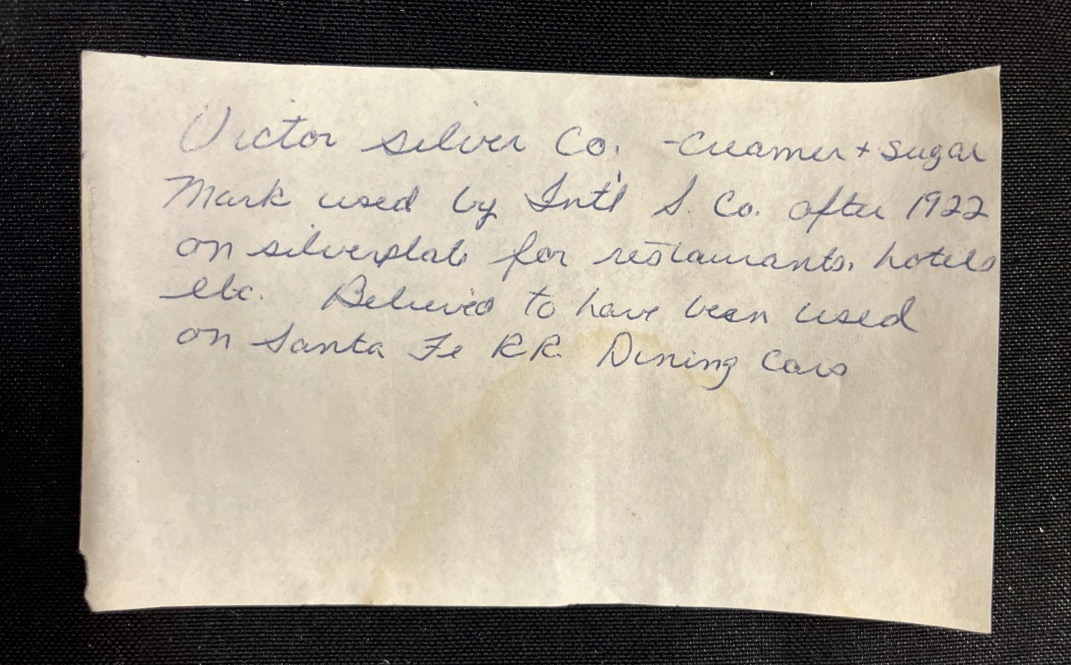 Victor Silver Co. - Creamer + Sugar
Mark used by Int'l S. Co. after 1922
on silverplate for restaurants, hotels
etc. Believed to have been used
on Santa Fe RR. Dining Cars